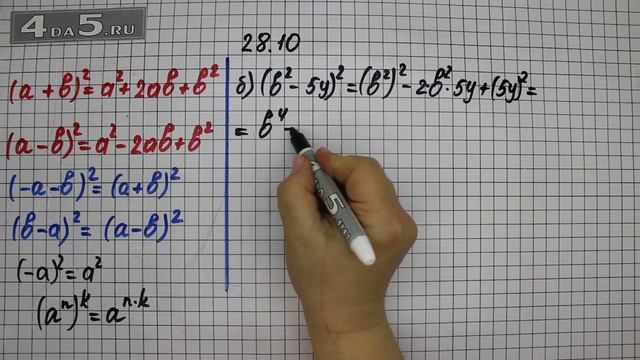 4DA5.RU
28.10
(a + b)² = a² + 2ab + b²
(a - b)² = a² - 2ab + b²
(-a - b)² = (a + b)²
(b - a)² = (a - b)²
(-a)² = a²
(aⁿ)ᵏ = aⁿ·ᵏ
б) (b² - 5y)² = (b²)² - 2·b²·5y + (5y)² =
= b⁴ -